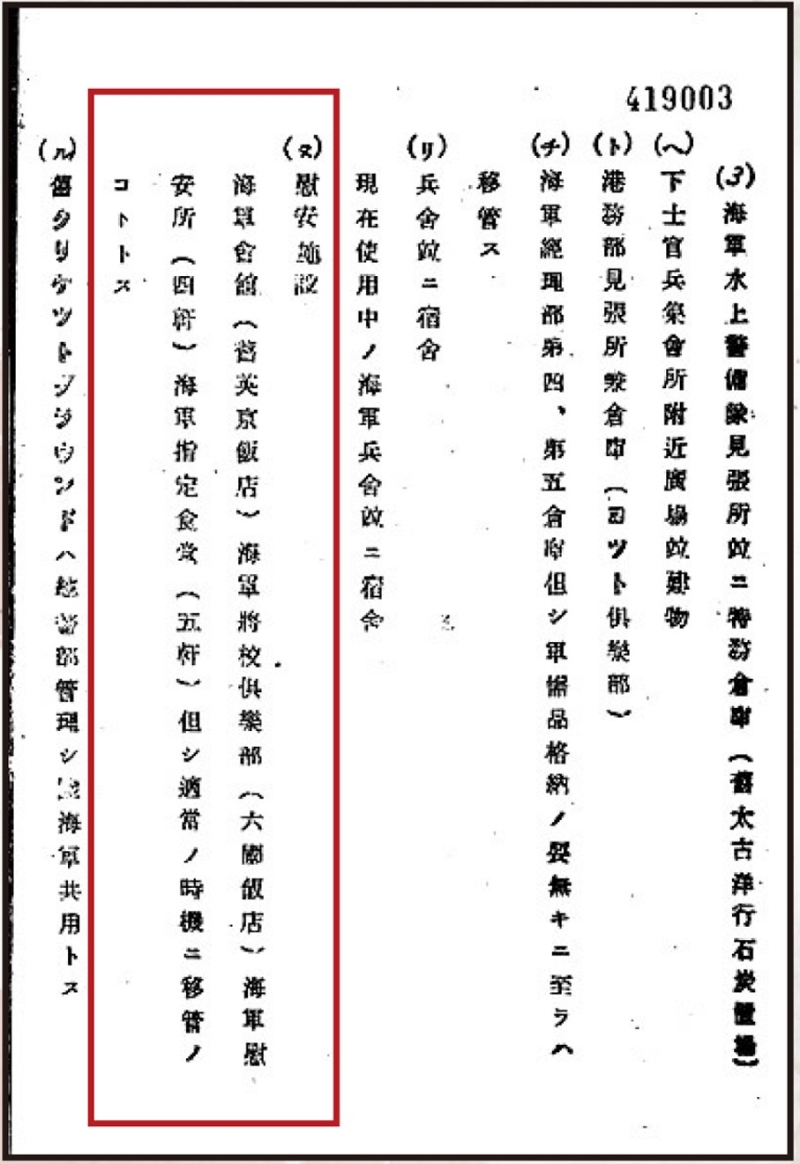 419003
(3)海軍水上警備隊見張所竝ニ特務倉庫(舊太古洋行石炭置場)
(ヘ)下士官兵集會所附近廣場竝建物
(ト)港務部見張所兼倉庫(ヨツト俱樂部)
(チ)海軍經理部第四、第五倉庫但シ軍需品格納ノ要無キニ至ラハ
移管ス
(リ)兵舍竝ニ宿舍
現在使用中ノ海軍兵舍竝ニ宿舍
(ヌ)慰安施設
海軍會館(舊英京飯店)海軍將校俱樂部(六國飯店)海軍慰
安所(四軒)海軍指定食堂(五軒)但シ適當ノ時機ニ移管ノ
コトトス
(ル)舊クリケツトグラウンドハ總督部管理シ陸海軍共用トス